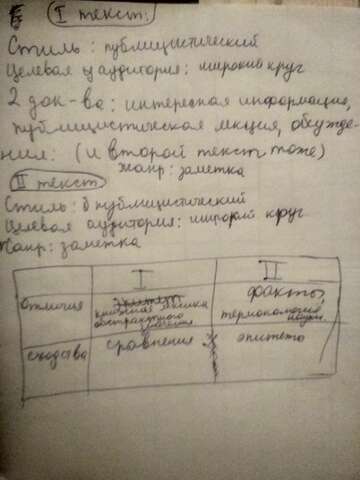 I текст:
Стиль: публицистический
Целевая аудитория: широкий круг
2 док-ва: интересная информация,
публицистическая лекция, обужде-
ния: (и второй текст тоже)
жанр: заметка
II текст
Стиль: публицистический
Целевая аудитория: широкий круг
Жанр: заметка
I II
Отличия книжная лексика факты,
абстрактного термокология
значения науки
сходства сравнения эпитеты